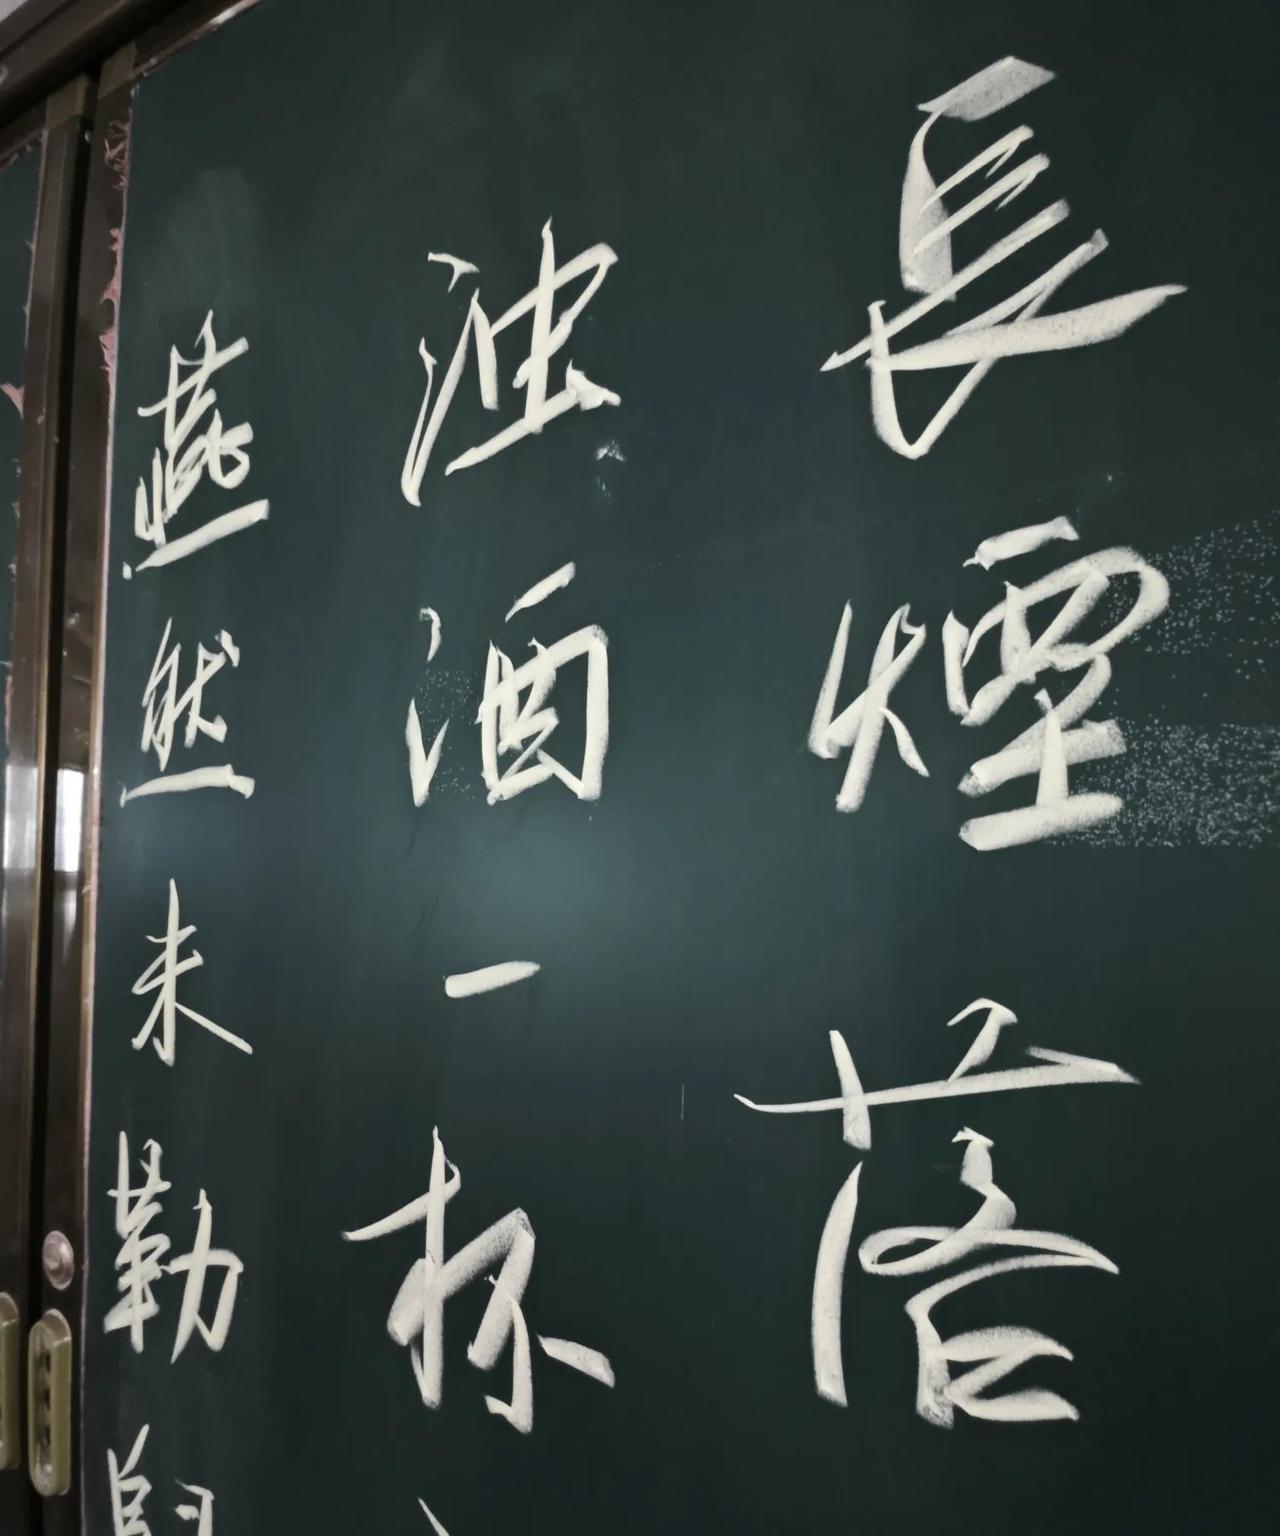 長煙落
浊酒一杯
燕然未勒